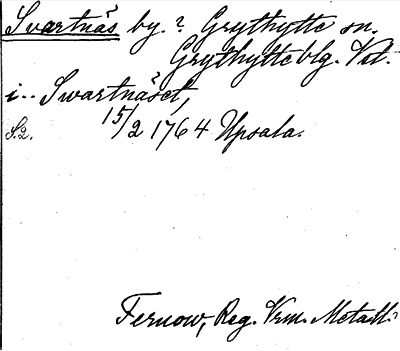 Svartnäs by. ? Grythytte sn.
Grythytteblg. Vtl.
i.. Swartnäset,
S.2. 15/2 1764 Upsala.
Fernow, Reg. Vrm. Metall.